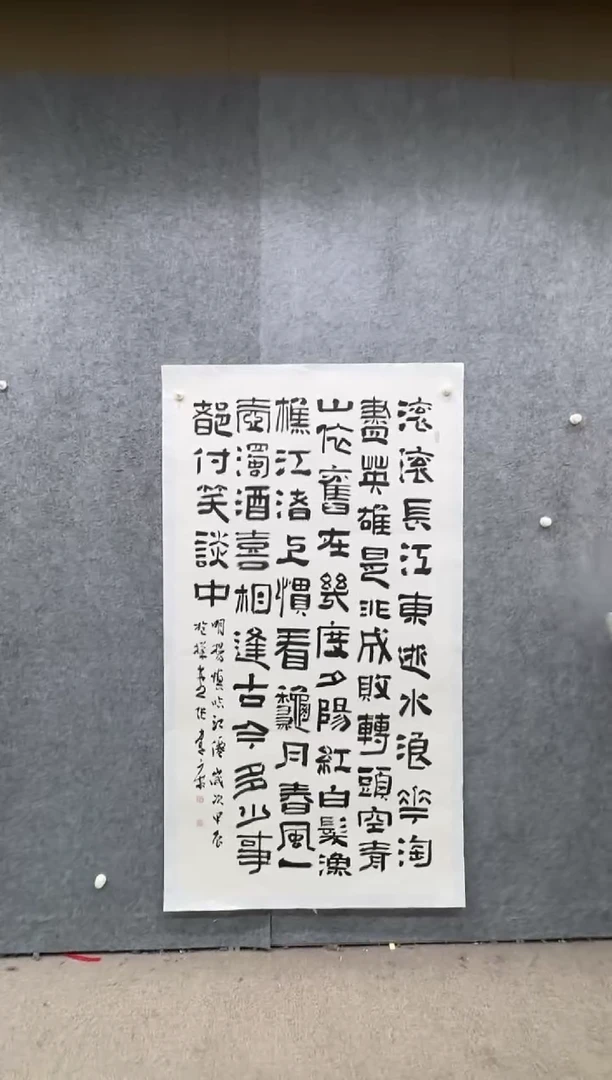 滚滚長江東逝水浪華淘
盡英雄是非成敗轉頭空青
山依舊在幾度夕陽紅白髮漁
樵江渚上慣看龝月春風一
壺濁酒喜相逢古今多少事
都付笑談中
明楊慎臨江僊歲次甲辰
於